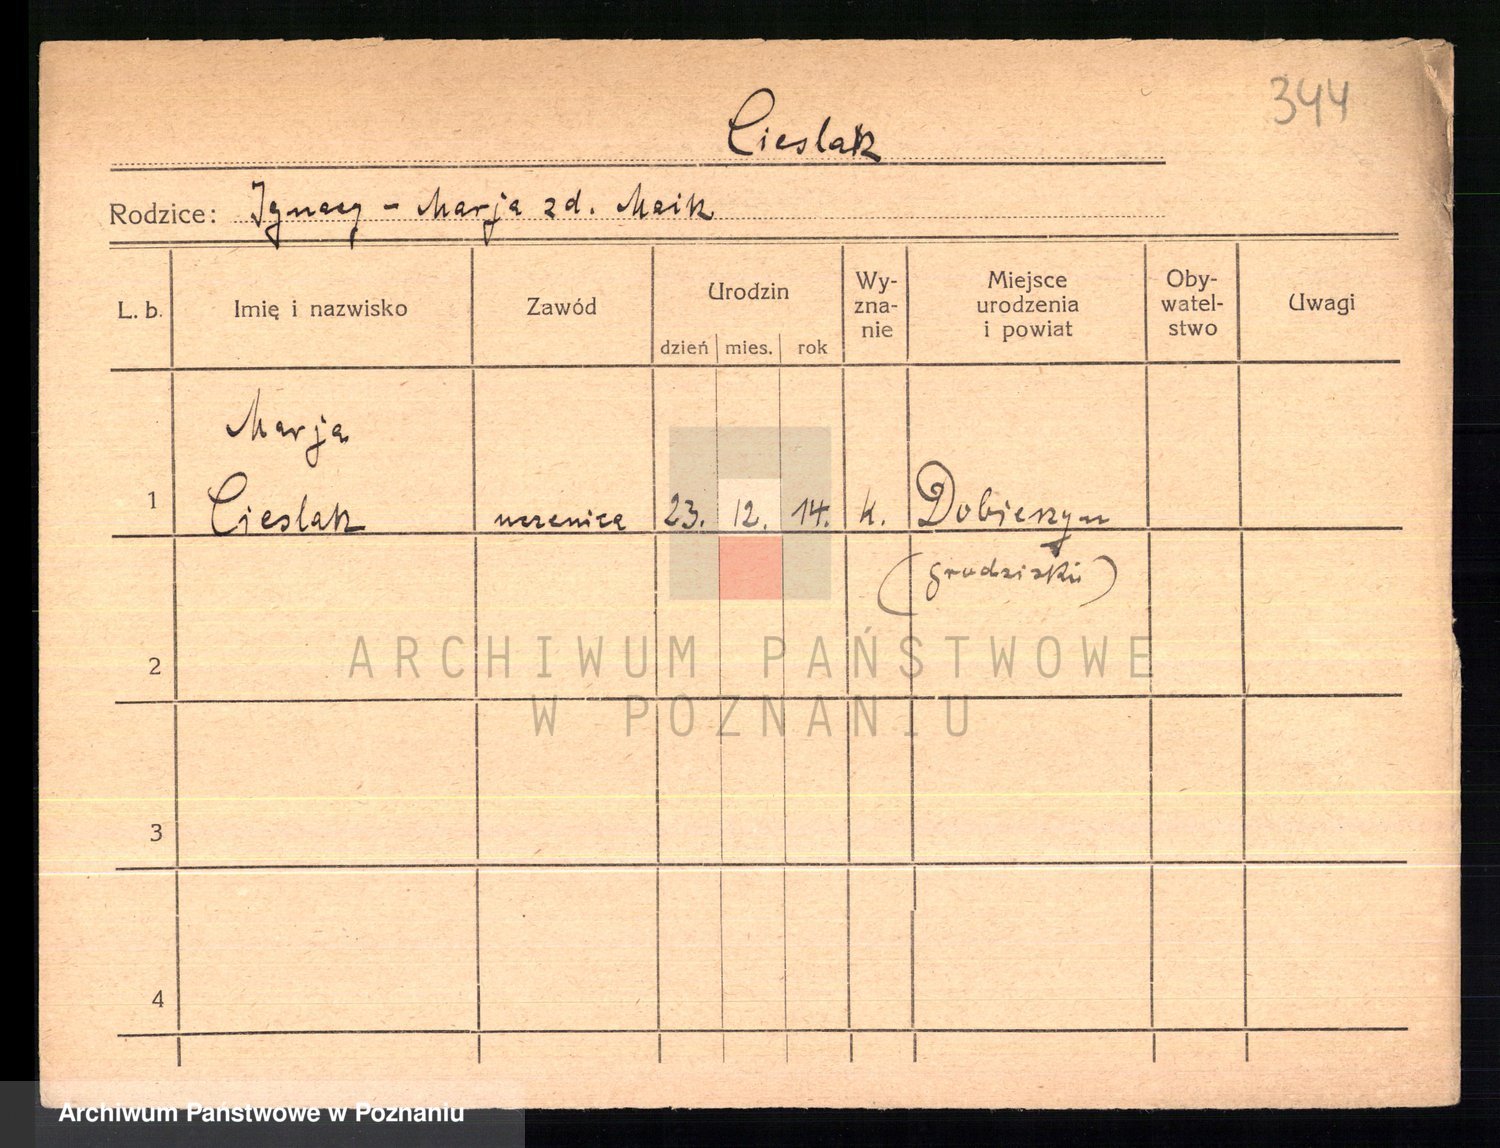 344
Cieslak
Rodzice: Ignacy - Marja zd. Maik
L. b. Imię i nazwisko Zawód Urodzin Wy- Miejsce Oby- Uwagi
zna- urodzenia watel-
nie i powiat stwo
dzień mies. rok
Marja
1 Cieslak uczenica 23. 12. 14. k. Dobieżyn
(grodziski)
2
ARCHIWUM PAŃSTWOWE
W POZNANIU
3
4
Archiwum Państwowe w Poznaniu